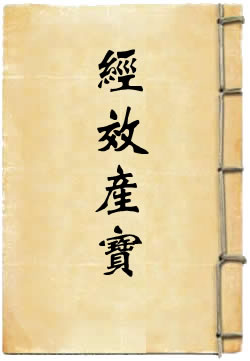 經效產寶